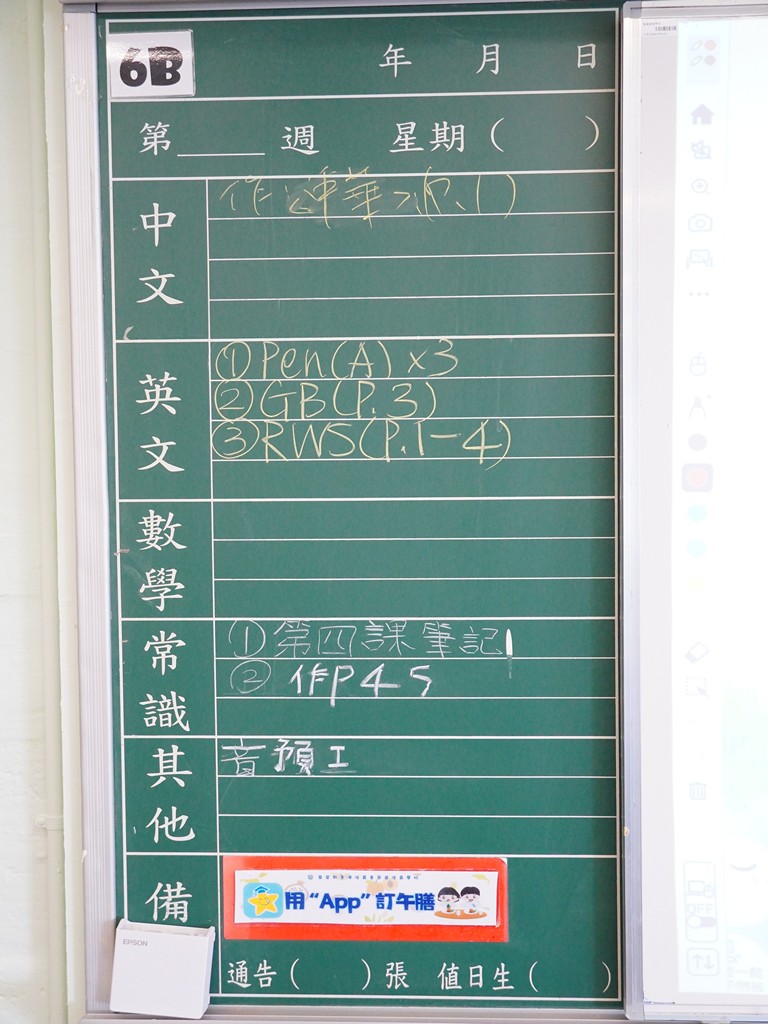 6B
年 月 日
第____週 星期( )
中文
作〈蓮華〉(P.1)
英文
①Pen(A)x3
②GB(P.3)
③RWS(P.1-4)
數學
常識
①第四課筆記
②作P45
其他
音預工
備
用“App”訂午膳
通告( )張 值日生( )
EPSON
OFF